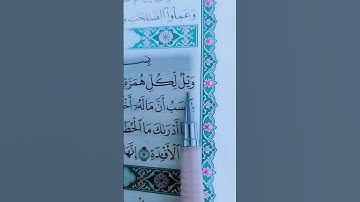 وَعَمِلُوا۟ ٱلصَّـٰلِحَـٰتِ
بِسْـ
وَيْلٌ لِّكُلِّ هُمَزَةٍ
سَبُ أَنَّ مَالَهُۥٓ أَخْ
أَدْرَىٰكَ مَا ٱلْحُطَ
ٱلْأَفْـِٔدَةِ ٧ إِنَّهَا